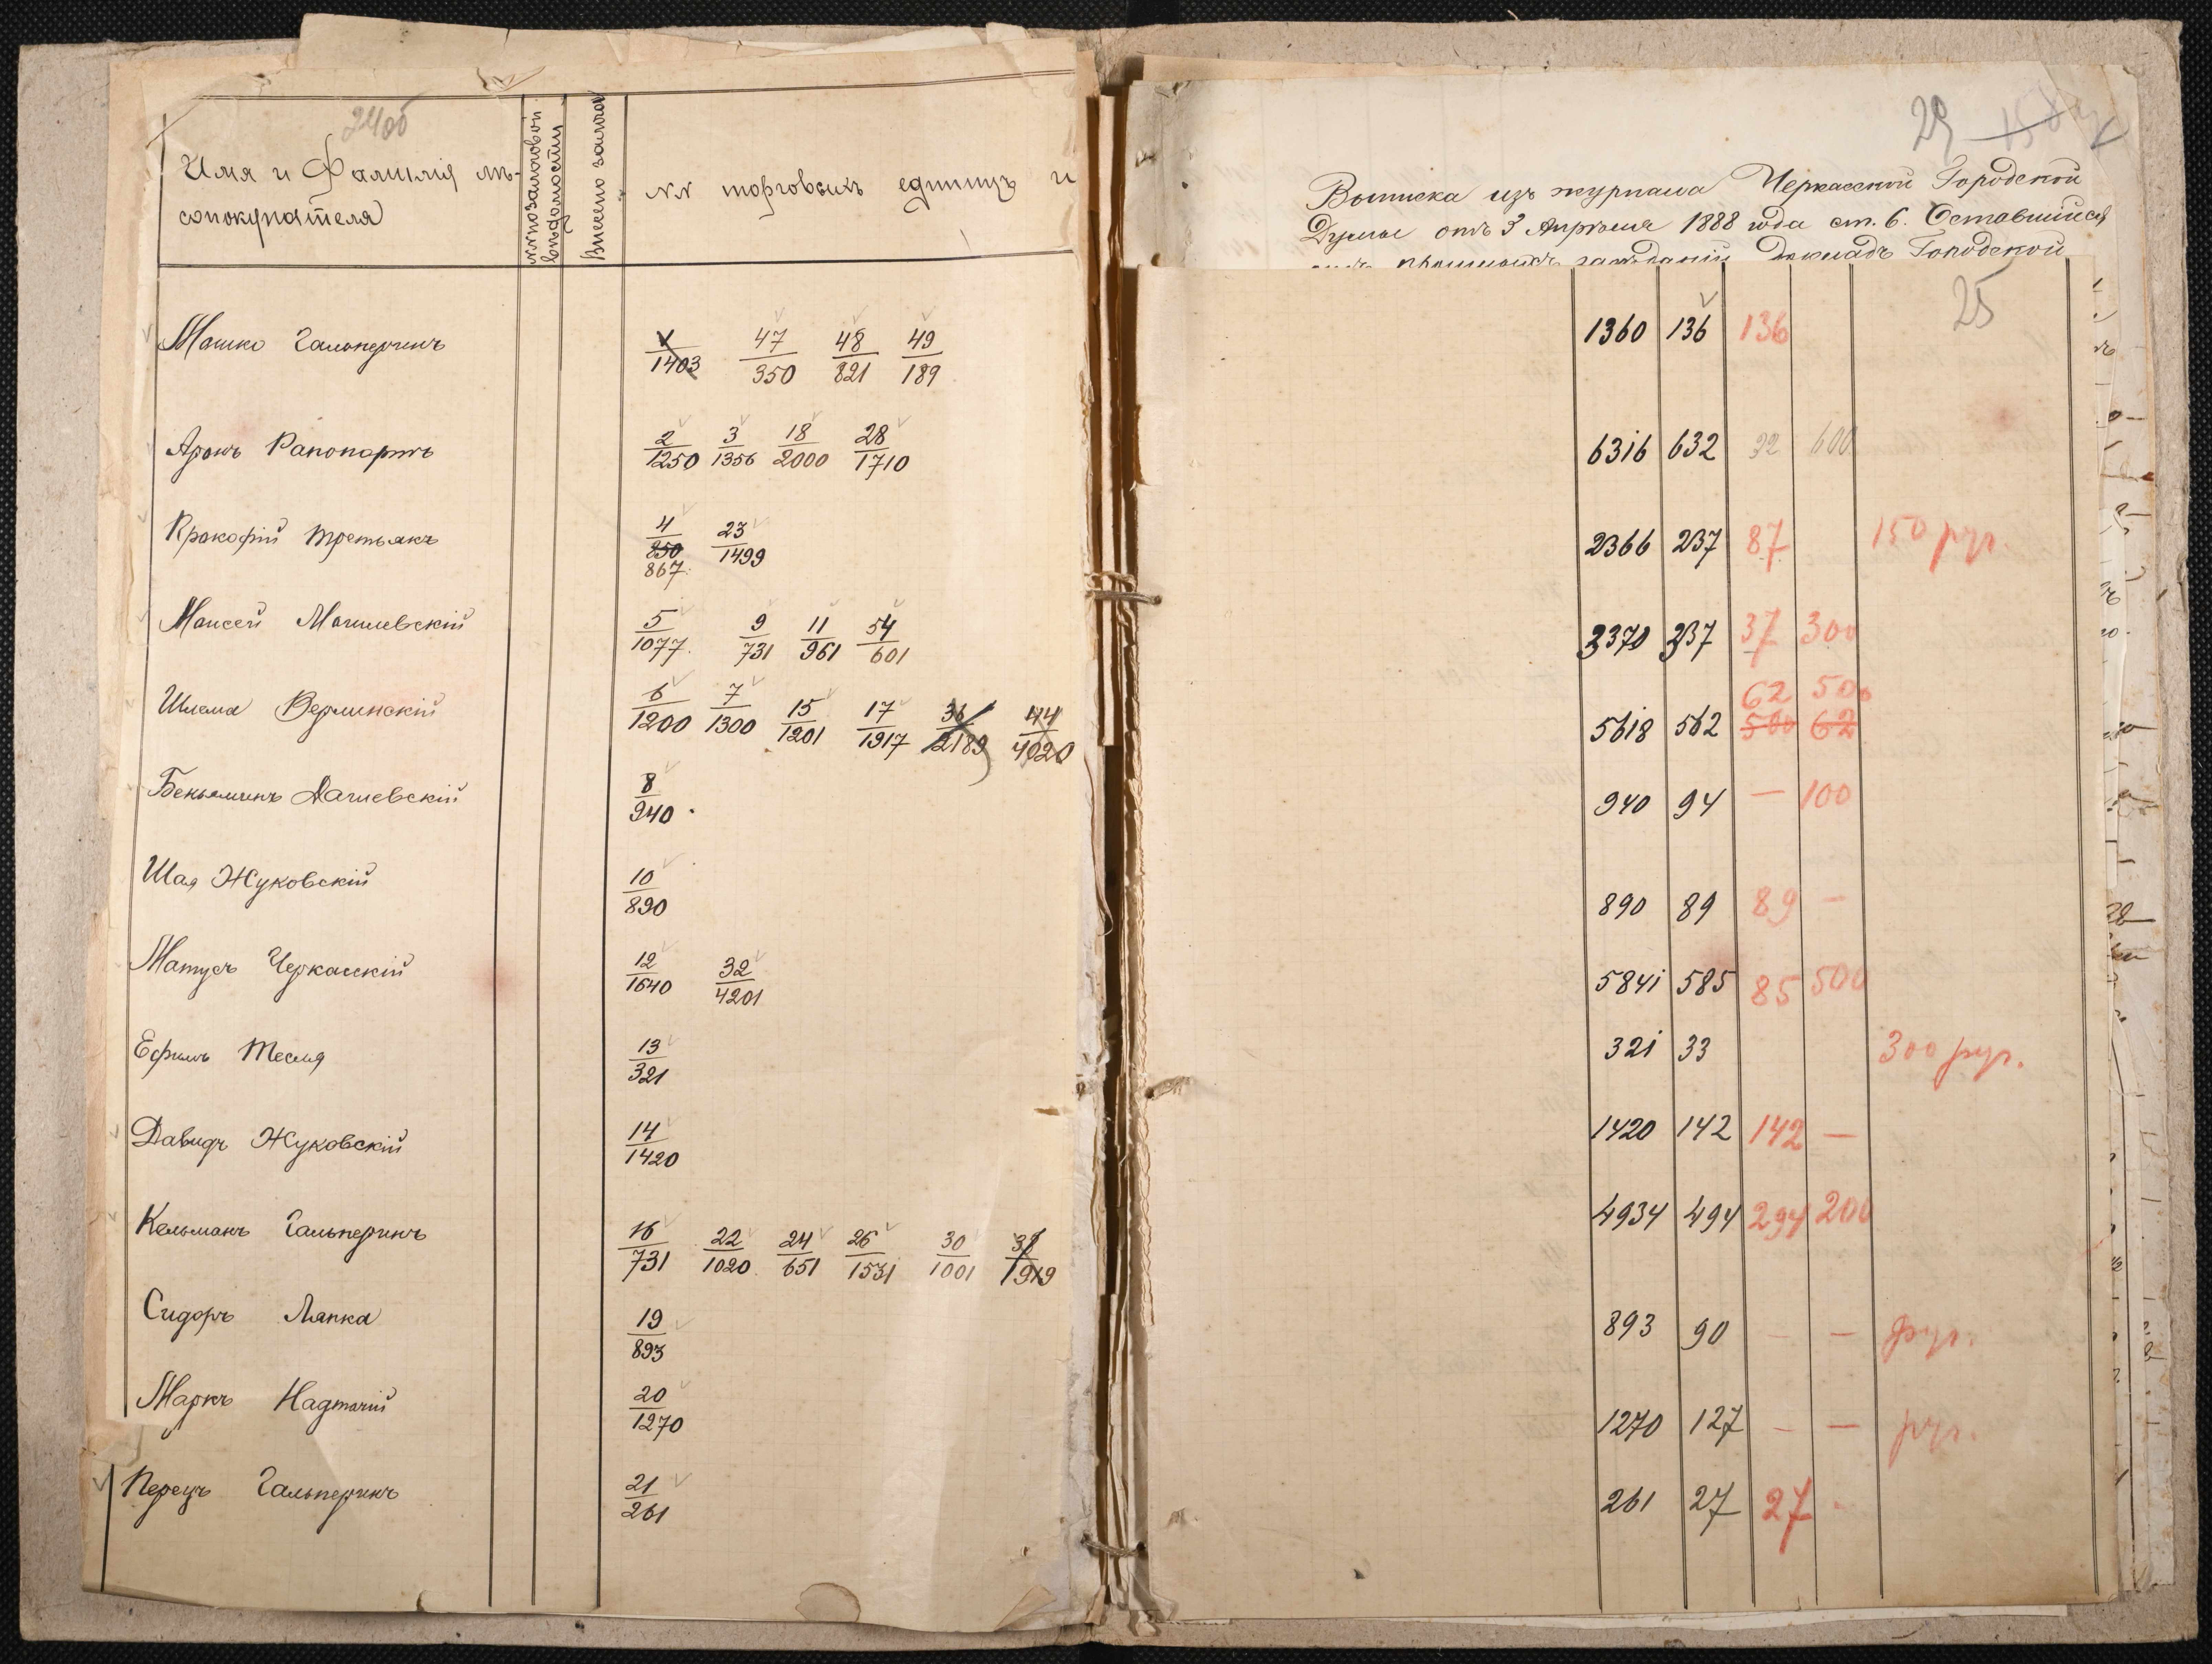 24об
Имя и Фамилія лѣ-
сопокупателя
№№ по залоговой
вѣдомости
Внесено залога
№№ торговыхъ единицъ и
Мошко Гальперинъ
1403 47/350 48/821 49/189
Аронъ Рапопортъ
2/1250 3/1356 18/2000 28/1710
Прокофій Третьякъ
4/850 23/1499
867
Моисей Могилевскій
5/1077 9/731 11/961 54/601
Шлема Верлинскій
6/1200 7/1300 15/1201 17/1917 36/2189 44/4020
Беньяминъ Дашевскій
8/940
Шая Жуковскій
10/890
Матусъ Черкасскій
12/1640 32/4201
Ефимъ Тесля
13/321
Давидъ Жуковскій
14/1420
Кельманъ Гальперинъ
16/731 22/1020 24/651 26/1531 30/1001 1919
Сидоръ Ляпка
19/893
Маркъ Надточій
20/1270
Перецъ Гальперинъ
21/261
29
Выписка изъ журнала Черкасской Городской
Думы отъ 3 Апрѣля 1888 года ст. 6. Оставшійся
засѣданій Докладъ Городской
25
1360 136 136
6316 632 32 600
2366 237 87 150 рур.
3370 337 37 300
62 500
5618 562 500 62
940 94 — 100
890 89 89 —
5841 585 85 500
321 33 300 рур.
1420 142 142 —
4934 494 294 200
893 90 — — рур.
1270 127 — — рур.
261 27 27